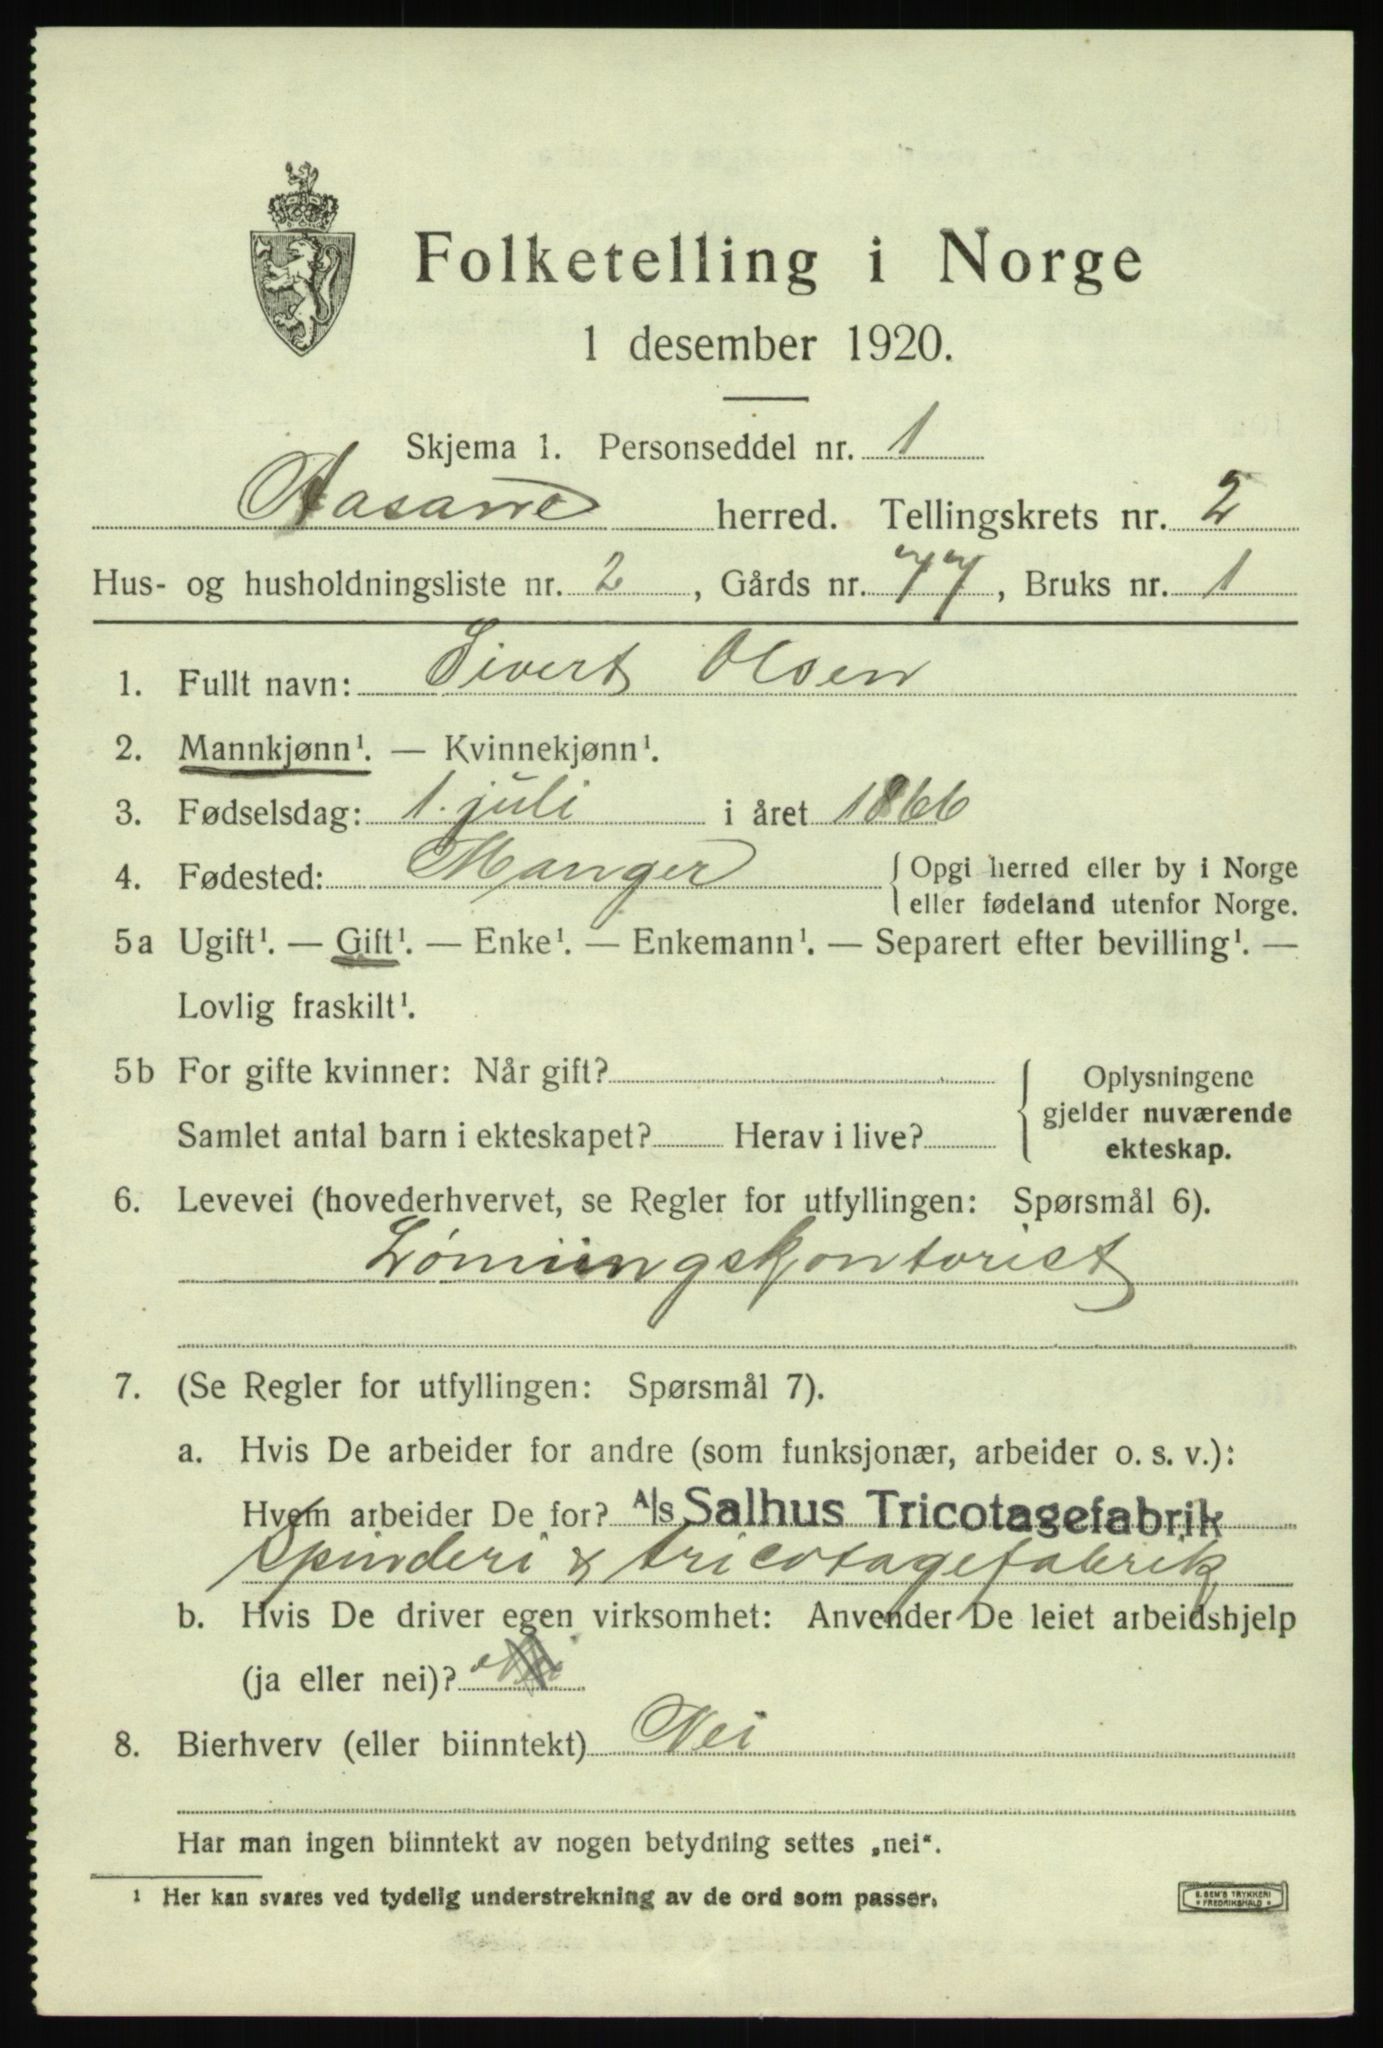 Folketelling i Norge
1 desember 1920.
Skjema 1. Personseddel nr. 1
Aasane herred. Tellingskrets nr. 2
Hus- og husholdningsliste nr. 2, Gårds nr. 77, Bruks nr. 1
1. Fullt navn: Sivert Olsen
2. Mannkjønn¹. — Kvinnekjønn¹.
3. Fødselsdag: 1. juli i året 1866
4. Fødested: Manger { Opgi herred eller by i Norge
eller fødeland utenfor Norge.
5a Ugift¹. — Gift¹. — Enke¹. — Enkemann¹. — Separert efter bevilling¹. —
Lovlig fraskilt¹.
5b For gifte kvinner: Når gift?
Samlet antal barn i ekteskapet? Herav i live?
{ Oplysningene
gjelder nuværende
ekteskap.
6. Levevei (hovederhvervet, se Regler for utfyllingen: Spørsmål 6).
Lønningskontorist
7. (Se Regler for utfyllingen: Spørsmål 7).
a. Hvis De arbeider for andre (som funksjonær, arbeider o. s. v.):
Hvem arbeider De for? A/s Salhus Tricotagefabrik
Spinderi & tricotagefabrik
b. Hvis De driver egen virksomhet: Anvender De leiet arbeidshjelp
(ja eller nei)?
8. Bierhverv (eller biinntekt) Nei
Har man ingen biinntekt av nogen betydning settes „nei“.
¹ Her kan svares ved tydelig understrekning av de ord som passer.
S. SEM'S TRYKKERI
* FREDRIKSHALD *